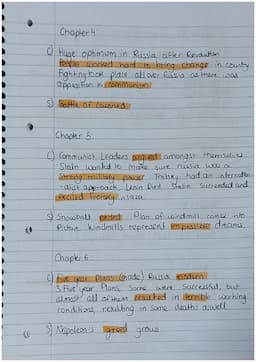 Chapter 4:
C) Huge optimism in Russia after Revolution
People worked hard to bring change in county
Fighting took place all over Russia as there was
opposition to communism
S) Battle of cowshed.
Chapter 5:
C) Communist Leaders argued amongst themselves
Stalin wanted to make sure russia was a
strong military power Trotsky had an internation
-alist approach. Lenin Died Stalin succeeded and
exciled Trotsky
S) Snowball exiled Plan of windmill comes into
Picture Windmills represent impossible dreams.
Chapter 6
C) Five year Plans (made) Russia modern
5 Five year Plans, Some were successful, but
almost all of them resulted in terrible working
conditions, resulting in some deaths aswell
S) Napoleon's greed grows